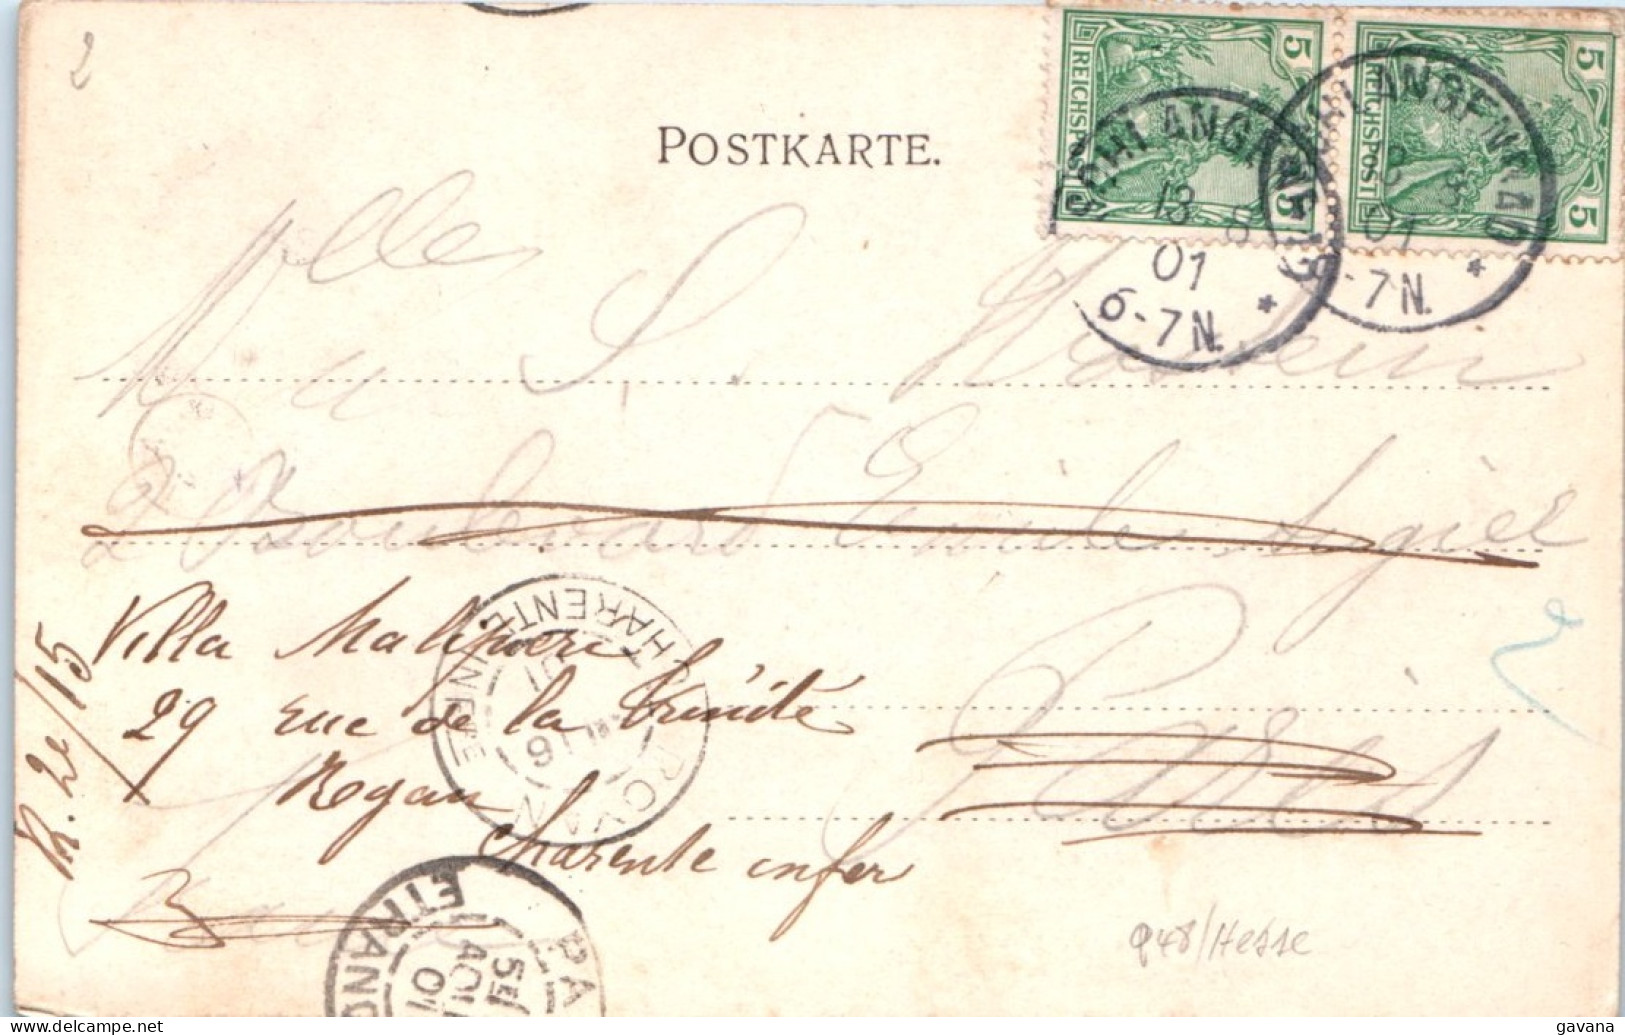 2
POSTKARTE.
REICHSPOST 5 5
REICHSPOST 5 5
SCHLANGENBAD
13 8
01
6-7N. *
SCHLANGENBAD
13 8
01
6-7N. *
Mlle S.
2 Boulevard Emile Augier
Paris
Villa
29 rue de la Trinité
Royan
Charente infer
R. 2e/15
ROYAN
CHARENTE INFRE
16
01
PA
ÉTRANG
15
AOU
01
948/Hesse
delcampe.net
gavana